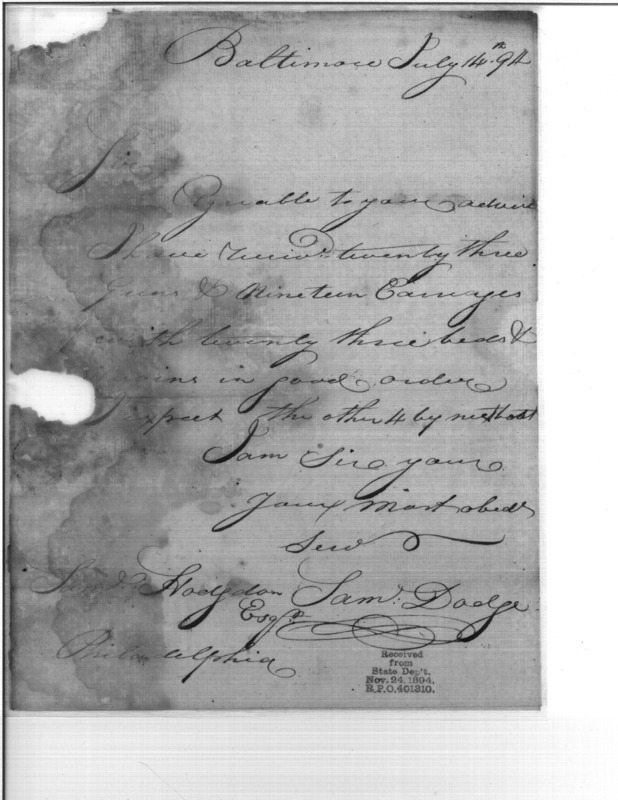 Baltimore July 14th 94
Sir
Agreable to your advice
I have receivd twenty three
Guns & Nineteen Carriages
with twenty three beds &
coins in good order
I expect the other 4 by next boat
I am Sir your
your most obedt
Serv
Saml Hodgdon Saml. Dodge
Esqr.
Philadelphia
Received
from
State Dep't.
Nov. 24. 1894.
R.P.O. 401310.